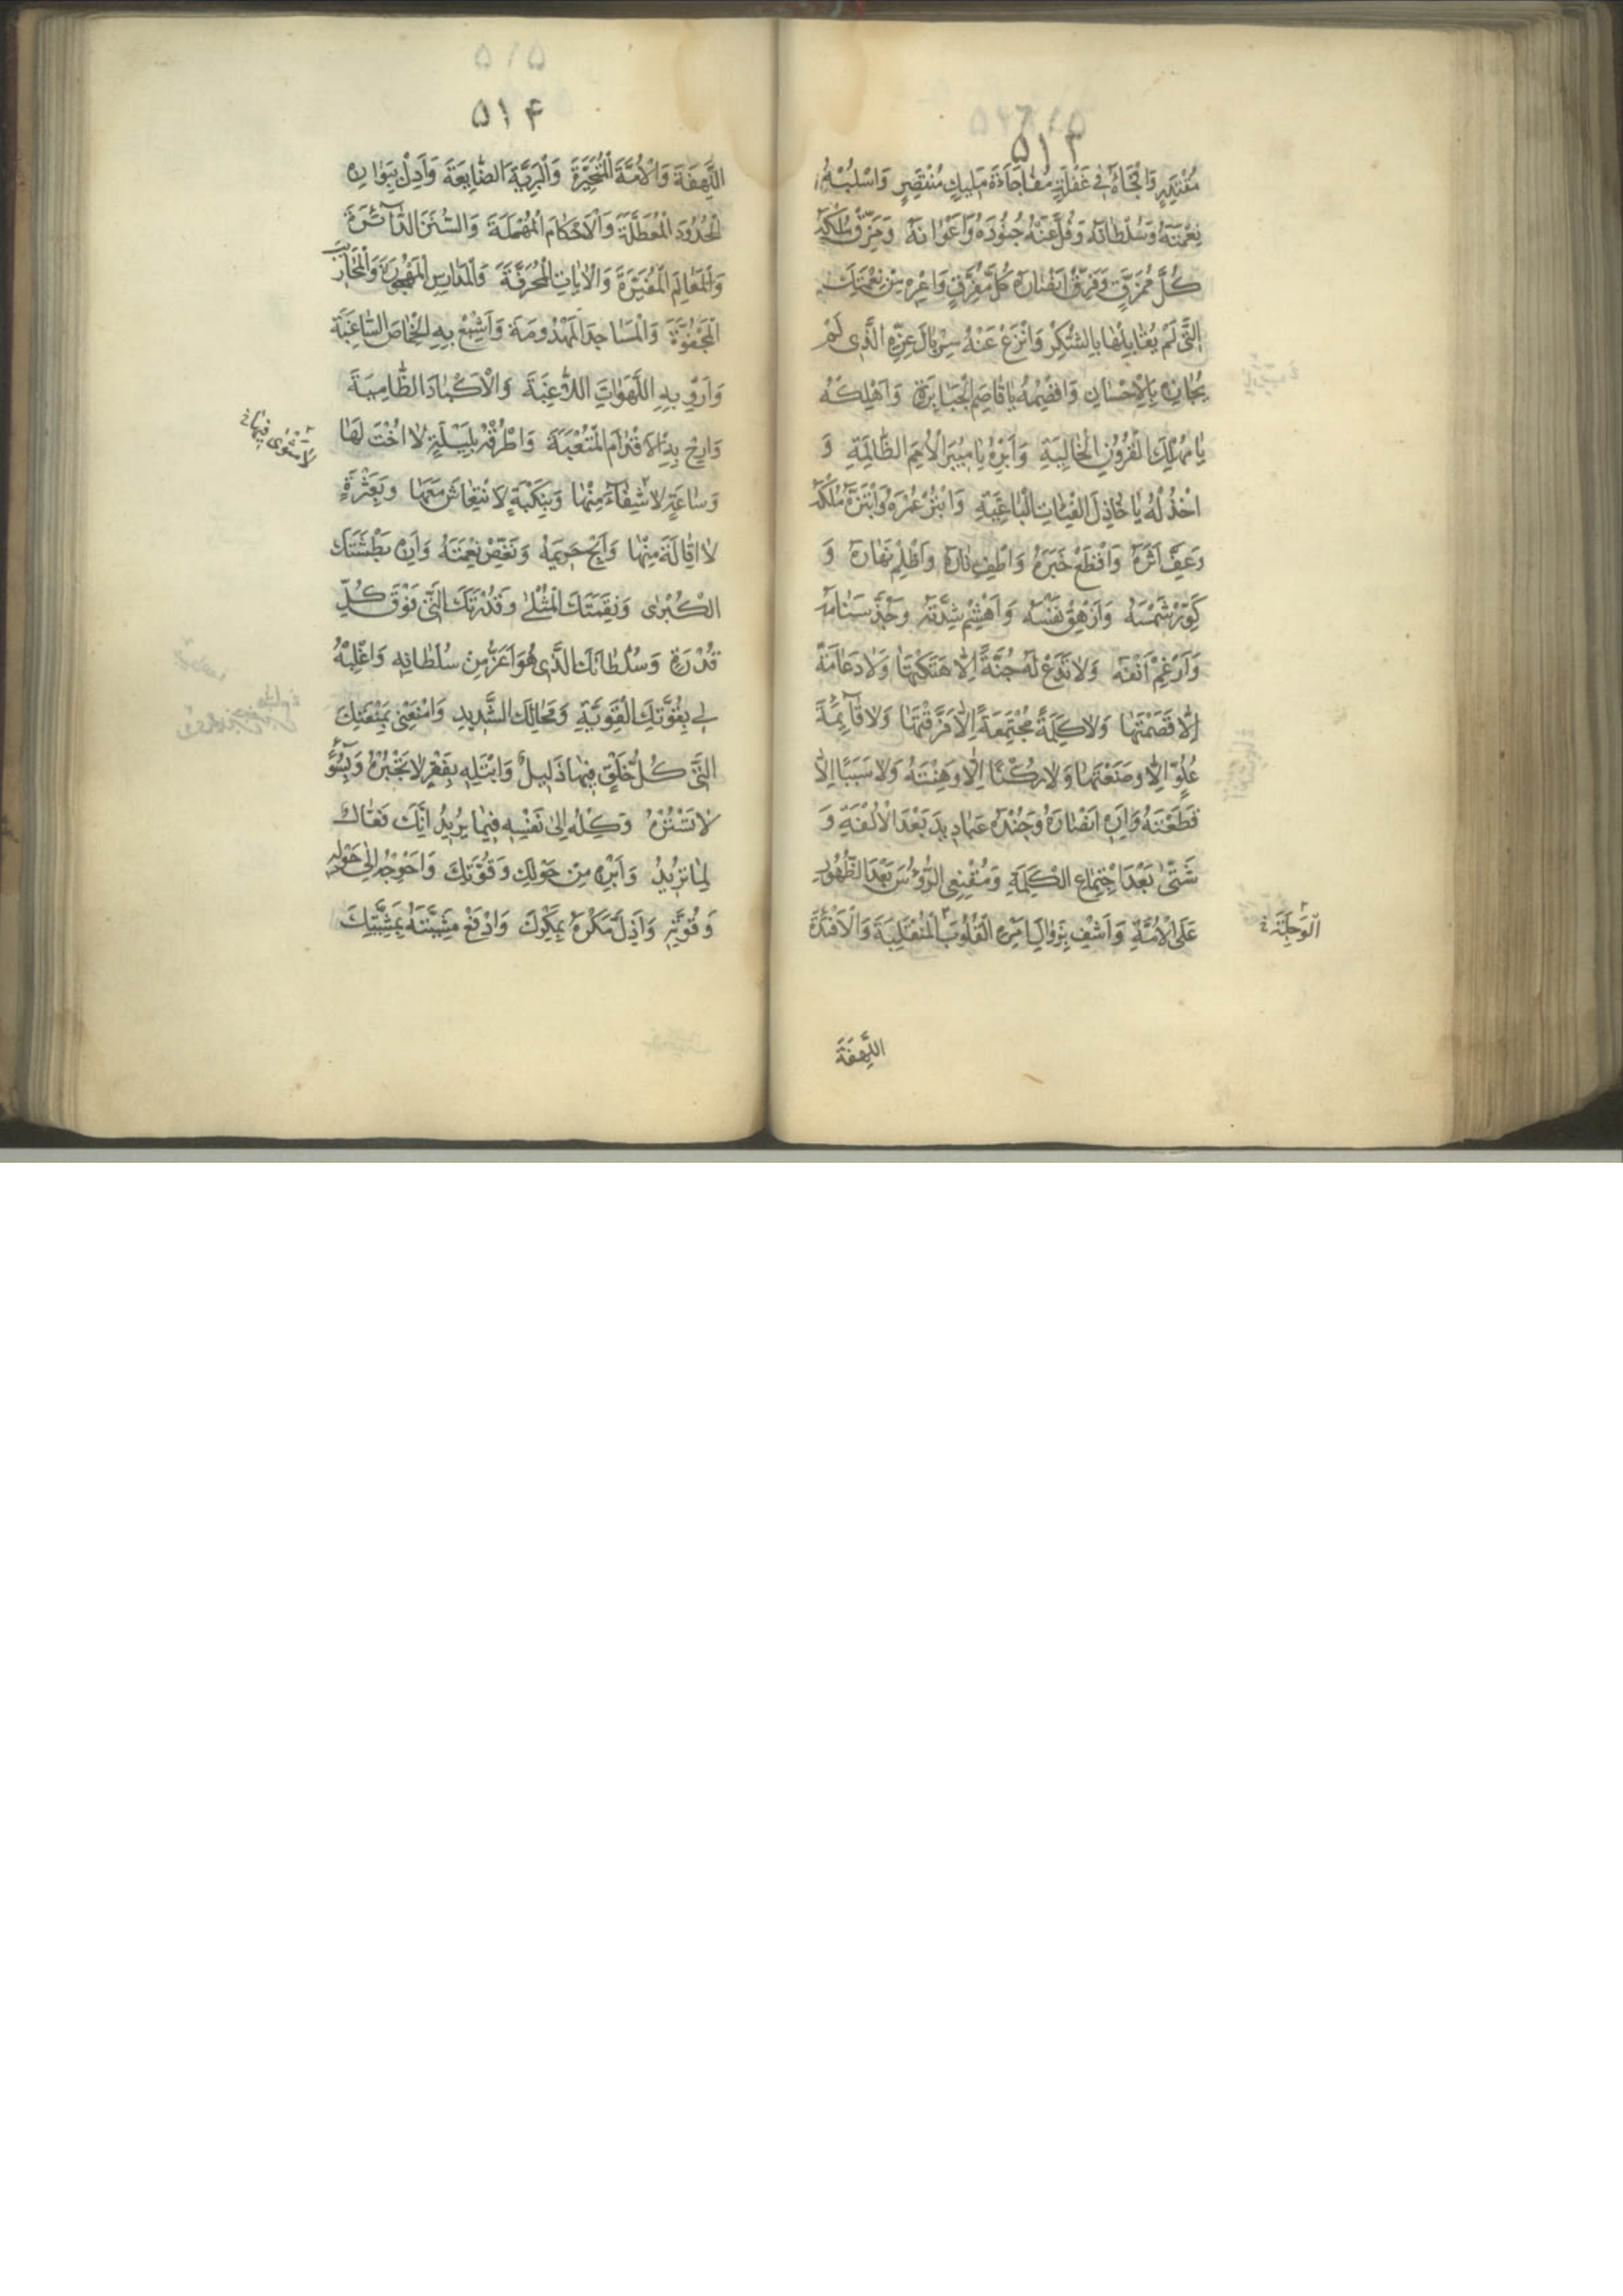 ۵۱۳
مُقْتَدِرٍ وَافْجَأْهُ فِي غَفْلَةٍ مُفَاجَاةَ مَلِيكٍ مُنْتَصِرٍ وَاسْلُبْهُ
نِعْمَتَهُ وَسُلْطَانَهُ وَفُلَّ عَنْهُ جُنُودَهُ وَأَعْوَانَهُ وَمَزِّقْ مُلْكَهُ
كُلَّ مُمَزَّقٍ وَفَرِّقْ أَنْصَارَهُ كُلَّ مُفَرَّقٍ وَأَعْرِهِ مِنْ نِعْمَتِكَ
الَّتِي لَمْ يُقَابِلْهَا بِالشُّكْرِ وَانْزَعْ عَنْهُ سِرْبَالَ عِزِّهِ الَّذِي لَمْ
يُجَازِهِ بِالْإِحْسَانِ وَاقْصِمْهُ يَا قَاصِمَ الْجَبَابِرَةِ وَأَهْلِكْهُ
يَا مُهْلِكَ الْقُرُونِ الْخَالِيَةِ وَأَبِرْهُ يَا مُبِيرَ الْأُمَمِ الظَّالِمَةِ وَ
اخْذُلْهُ يَا خَاذِلَ الْفِئَاتِ الْبَاغِيَةِ وَابْتُرْ عُمْرَهُ وَابْتَزَّهُ مُلْكَهُ
وَعَفِّ أَثَرَهُ وَاقْطَعْ خَبَرَهُ وَاَطْفِ نَارَهُ وَأَظْلِمْ نَهَارَهُ وَ
كَوِّرْ شَمْسَهُ وَأَزْهِقْ نَفْسَهُ وَاهْشِمْ شِدَّتَهُ وَجُذَّ سَنَامَهُ
وَأَرْغِمْ أَنْفَهُ وَلَا تَدَعْ لَهُ جُنَّةً إِلَّا هَتَكْتَهَا وَلَا دَعَامَةً
إِلَّا قَصَمْتَهَا وَلَا كَلِمَةً مُجْتَمِعَةً إِلَّا فَرَّقْتَهَا وَلَا قَائِمَةَ
عُلُوٍّ إِلَّا وَضَعْتَهَا وَلَا رُكْنًا إِلَّا وَهَنْتَهُ وَلَا سَبَبًا إِلَّا
قَطَعْتَهُ وَأَرِهِ أَنْصَارَهُ وَجُنْدَهُ عَبَادِيدَ بَعْدَ الْأُلْفَةِ وَ
شَتَّى بَعْدَ اجْتِمَاعِ الْكَلِمَةِ وَمُقْنِعِي الرُّؤُسَ بَعْدَ الظُّهُورِ
عَلَى الْأُمَّةِ وَاَشْفِ بِزَوَالِ اَمْرِهِ الْقُلُوبَ الْمُنْقَلِبَةَ وَالْأَفْئِدَةَ
الْوَجِلَةَ خ
اللَّهِفَةَ
۵۱۴
اللَّهِفَةَ وَالْأُمَّةَ الْمُتَحَيِّرَةَ وَالْبَرِيَّةَ الضَّايِعَةَ وَأَدِلْ بِبَوَارِهِ
الْحُدُودَ الْمُعَطَّلَةَ وَالْأَحْكَامَ الْمُهْمَلَةَ وَالسُّنَنَ الدَّاثِرَةَ
وَالْمَعَالِمَ الْمُغَيَّرَةَ وَالْآيَاتِ الْمُحَرَّفَةَ وَالْمَدَارِسَ الْمَهْجُورَةَ وَالْمَحَارِيبَ
الْمَجْفُوَّةَ وَالْمَسَاجِدَ الْمَهْدُومَةَ وَأَشْبِعْ بِهِ الْخِمَاصَ السَّاغِبَةَ
وَأَرْوِ بِهِ اللَّهَوَاتِ اللَّاغِبَةَ وَالْأَكْبَادَ الظَّامِيَةَ
وَأَرِحْ بِهِ الْأَقْدَامَ الْمُتْعَبَةَ وَاطْرُقْهُ بِلَيْلَةٍ لَا أُخْتَ لَهَا
لَا مَثْوَى فِيهَا خ
وَسَاعَةٍ لَا شِفَاءَ مِنْهَا وَبِنَكْبَةٍ لَا انْتِعَاشَ مَعَهَا وَبِعَثْرَةٍ
لَا إِقَالَةَ مِنْهَا وَأَبِحْ حَرِيمَهُ وَنَغِّصْ نِعْمَتَهُ وَأَرِهِ بَطْشَتَكَ
الْكُبْرَى وَنِقْمَتَكَ الْمُثْلَى وَقُدْرَتَكَ الَّتِي فَوْقَ كُلِّ
قُدْرَةٍ وَسُلْطَانَكَ الَّذِي هُوَ أَعَزُّ مِنْ سُلْطَانِهِ وَاغْلِبْهُ
لِي بِقُوَّتِكَ الْقَوِيَّةِ وَمِحَالِكَ الشَّدِيدِ وَامْنَعْنِي بِمَنْعَتِكَ
الَّتِي كُلُّ خَلْقٍ فِيهَا ذَلِيلٌ وَابْتَلِهِ بِفَقْرٍ لَا تَجْبُرُهُ وَبِسُوءٍ
لَا تَسْتُرُهُ وَكِلْهُ إِلَى نَفْسِهِ فِيمَا يُرِيدُ إِنَّكَ فَعَّالٌ
لِمَا تُرِيدُ وَأَبْرِهِ مِنْ حَوْلِكَ وَقُوَّتِكَ وَأَحْوِجْهُ إِلَى حَوْلِهِ
وَقُوَّتِهِ وَأَذِلَّ مَكْرَهُ بِمَكْرِكَ وَادْفَعْ مَشِيَّتَهُ بِمَشِيَّتِكَ